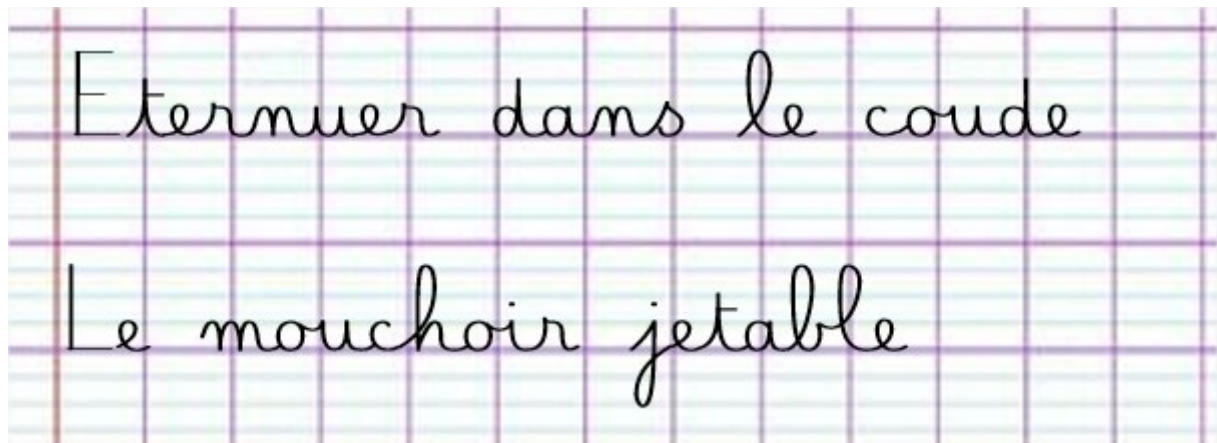 Eternuer dans le coude
Le mouchoir jetable